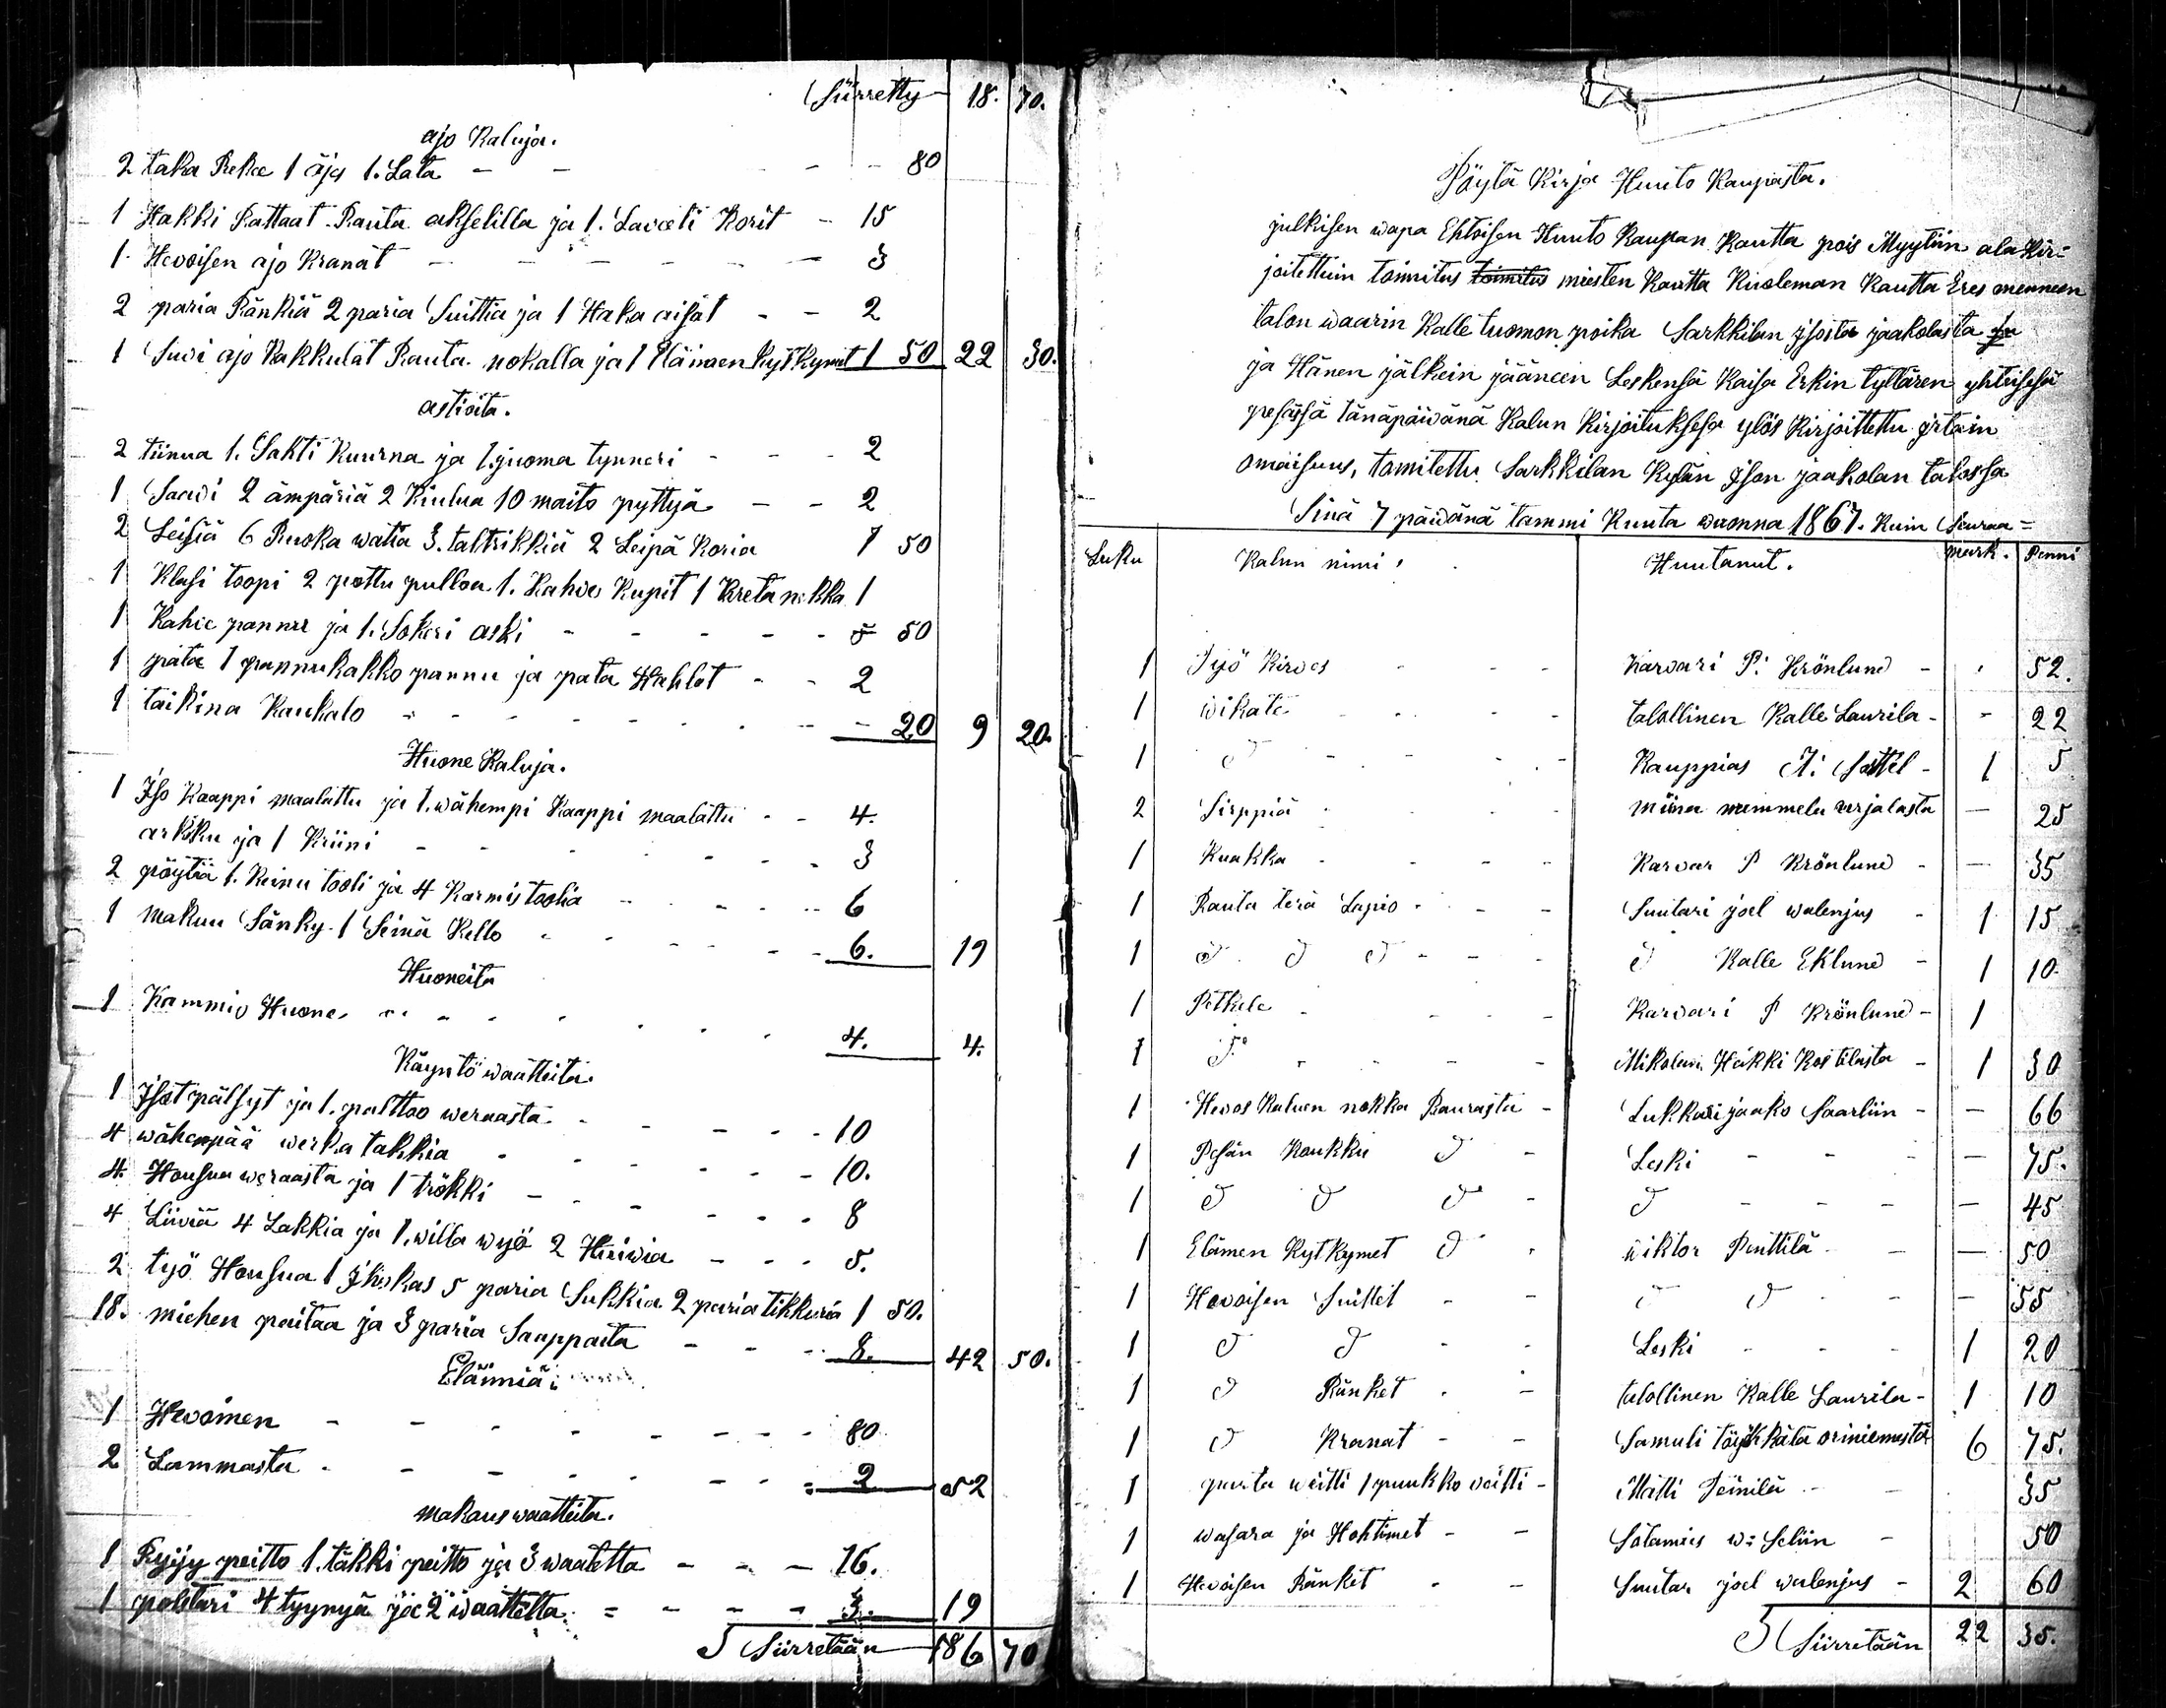 Siirretty 18. 70.
ajo Kaluja.
2 taka Rekee 1 äjs 1. Lata - - - - 80
1 Hakki Rattaat Rauta akselilla ja 1. Laveeti Korit - 15
1 Hevoisen ajo Kranat - - - - - 3
2 paria Ränkiä 2 paria Suittia ja 1 Haka aisat - - 2
1 Suvi ajo Kakkulat Rauta nokalla ja 1 Eläimen kytkymet 1 50 22 30.
astioita.
2 tiinua 1. Sakti Kuurna ja 1. juoma tynneri - - - 2
1 Saavi 2 ämpäriä 2 Kiulua 10 maito pyttyä - - 2
2 Leisiä 6 Ruoka watia 3. taltrikkiä 2 Leipä Koria 1 50
1 Klasi toopi 2 pottu pulloa 1. Kahve Kupit 1 Kreta nekka 1
1 Kahie pannu ja 1. Sokeri aski - - - - - 50
1 pata 1 pannukakko pannu ja pata Hahlot - - 2
1 taikina Kaukalo - - - - - - - 20 9 20.
Huone Kaluja.
1 Iso Kaappi maalattu ja 1. wähempi Kaappi maalattu - - 4.
arkku ja 1 Kriini - - - - - - 3
2 pöytiä 1. Keinu tooli ja 4 Karmistoolia - - - - 6
1 makuu Sänky 1 Seinä Kello - - - - - 6. 19
Huoneita
1 Kammio Huone - - - - - - - 4. 4.
Käyntö waatteita.
1 Isot pälsyt ja 1. palttoo weraasta - - - - - 10
4 wähempää werka takkia - - - - - - 10.
4. Housua weraasta ja 1 trökki - - - - - - 8
4 Liiviä 4 Lakkia ja 1. willa wyö 2 Huivia - - - 5.
2 työ Housua 1 Ihokas 5 paria Sukkia 2 paria tikkuria 1 50.
18. miehen paitaa ja 3 paria Saappaita - - - 8. 42 50.
Elämiä:
1 Hevoinen - - - - - - - 80
2 Lammasta - - - - - - - 2 52
makaus waatteita.
1 Ryijy peitto 1. täkki peitto ja 3 waatetta - - - 16.
1 polstari 4 tyynyä ja 2 waatetta - - - - 3. 19
Siirretään 186 70
Pöytä Kirja Huuto Kaupasta.
julkisen wapa Ehtoisen Huuto Kaupan Kautta pois Myytiin ala Kir-
joitettuin toimitus toimitus miesten Kautta Kuoleman Kautta Eres menneen
talon waarin Kalle tuomon poika Sarkkilan Isosta jaakolasta ja
ja Hänen jälkein jääneen Leskensä Kaisa Erkin tyttären yhteisesä
pesässä tänäpäiwänä Kalun Kirjoituksesa ylös Kirjoitettu irtain
omaisuus, tomitettu Sarkkilan Kylän Ison jaakolan talossa
Sinä 7 päiwänä tammi Kuuta wuonna 1867. Kuin Seuraa=
Luku Kalun nimi, Huutanut. mark. Penni
1 Työ Kirves - - - Karvari P. Krönlund - 52.
1 wikate - - - - talollinen Kalle Laurila - - 22
1 d - - - - Kauppias A: Sattel - 1 5
2 Sirppiä - - - miina mämmelu urjalasta - 25
1 Kuokka - - - - Karvar P Krönlund - - 35
1 Rauta terä Lapio - - - Suutari joel walenjus - 1 15
1 d d d - - - d Kalle Eklund - 1 10
1 Petkele - - - - Karvari P Krönlund - 1
1 d - - - - Mikolai Häkki Kostilasta - 1 30
1 Hevos Kaluen nokka Raurasta - Lukkari jaako Saarliin - - 66
1 Pesän Koukku d - Leski - - - - 75.
1 d d d - d - - - - 45
1 Elämen Kytkymet d - wiktor Penttilä - - - 50
1 Hevoisen Suittet - - d d - - - 55
1 d d - - Leski - - - 1 20
1 d Ränket - - talollinen Kalle Laurila - 1 10
1 d Kranat - - Samuli töykkälä oriniemestä 6 75.
1 parta weitti 1 puukko veitti - Matti Seinilä - - 35
1 wasara ja Hohtimet - - Sotamies w: Seliin - 50
1 Hevoisen Ränket - - Suutar joel walenjus - 2 60
Siirretään 22 35.